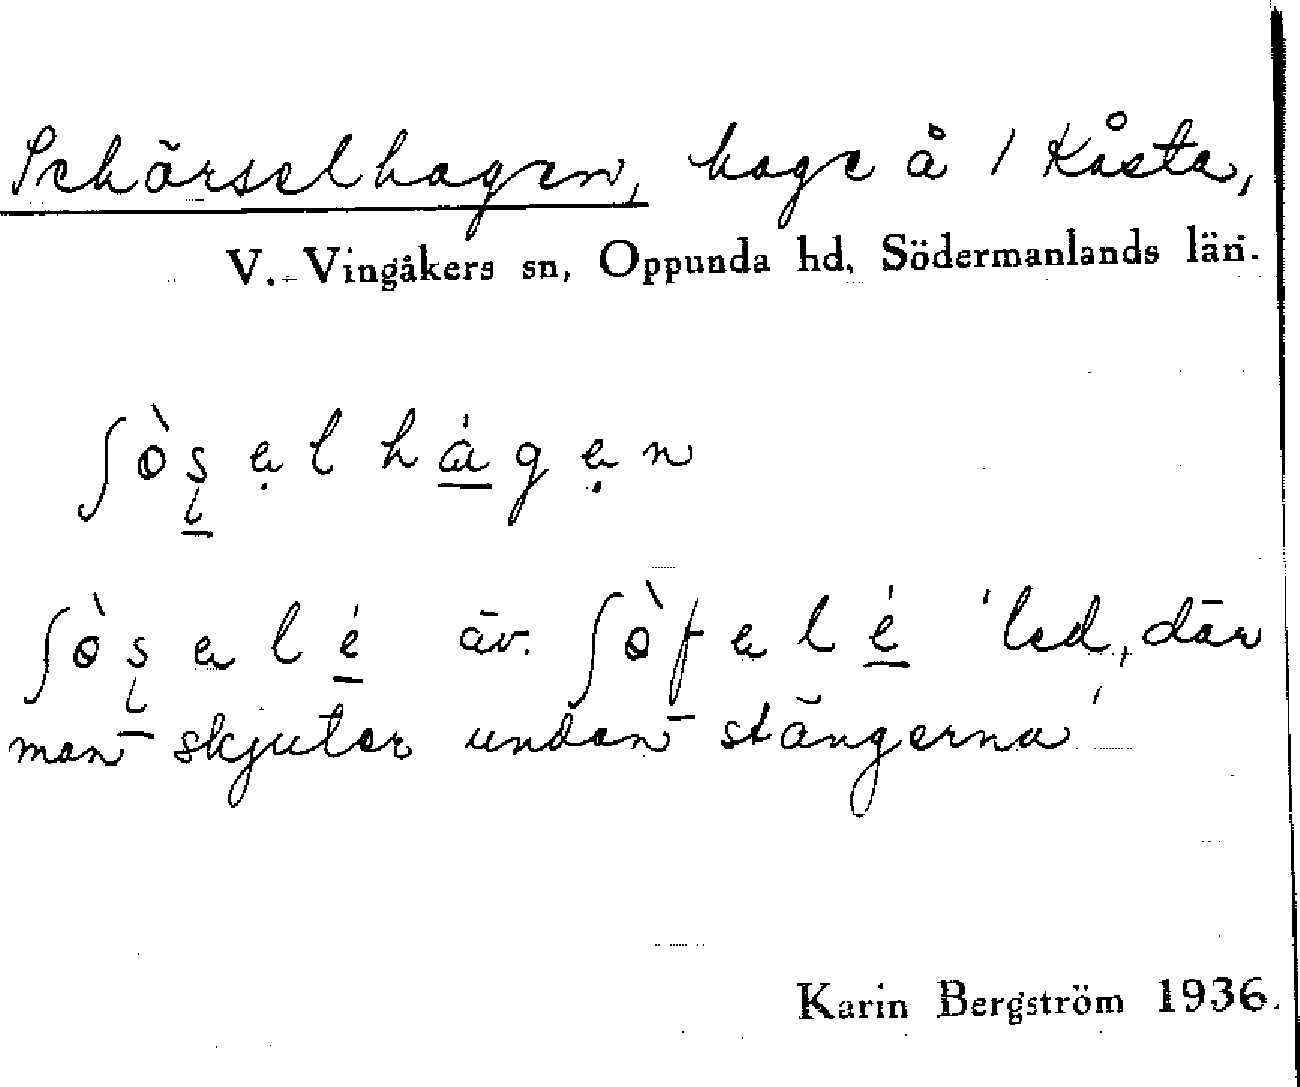 Schörselhagen, hage å / Kåsta,
V. Vingåkers sn, Oppunda hd, Södermanlands län.
ʃòʂəlhágən
ʃòʂəlé äv. ʃòfəlé 'led, där
man skjuter undan stängerna'
Karin Bergström 1936.